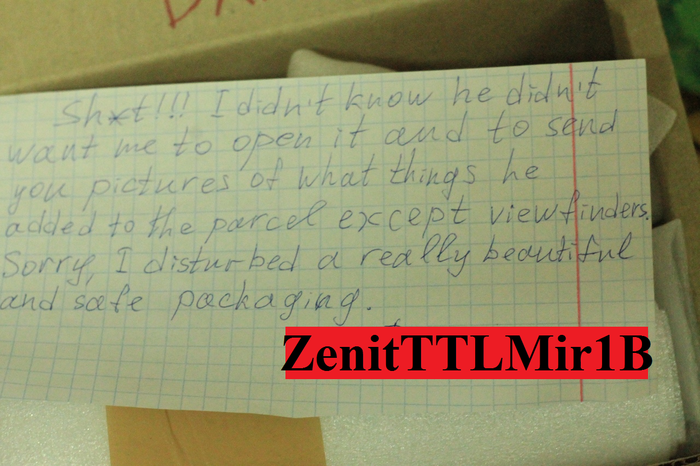 Sh*t!!! I didn't know he didn't
want me to open it and to send
you pictures of what things he
added to the parcel except viewfinders.
Sorry, I disturbed a really beautiful
and safe packaging.
ZenitTTLMir1B